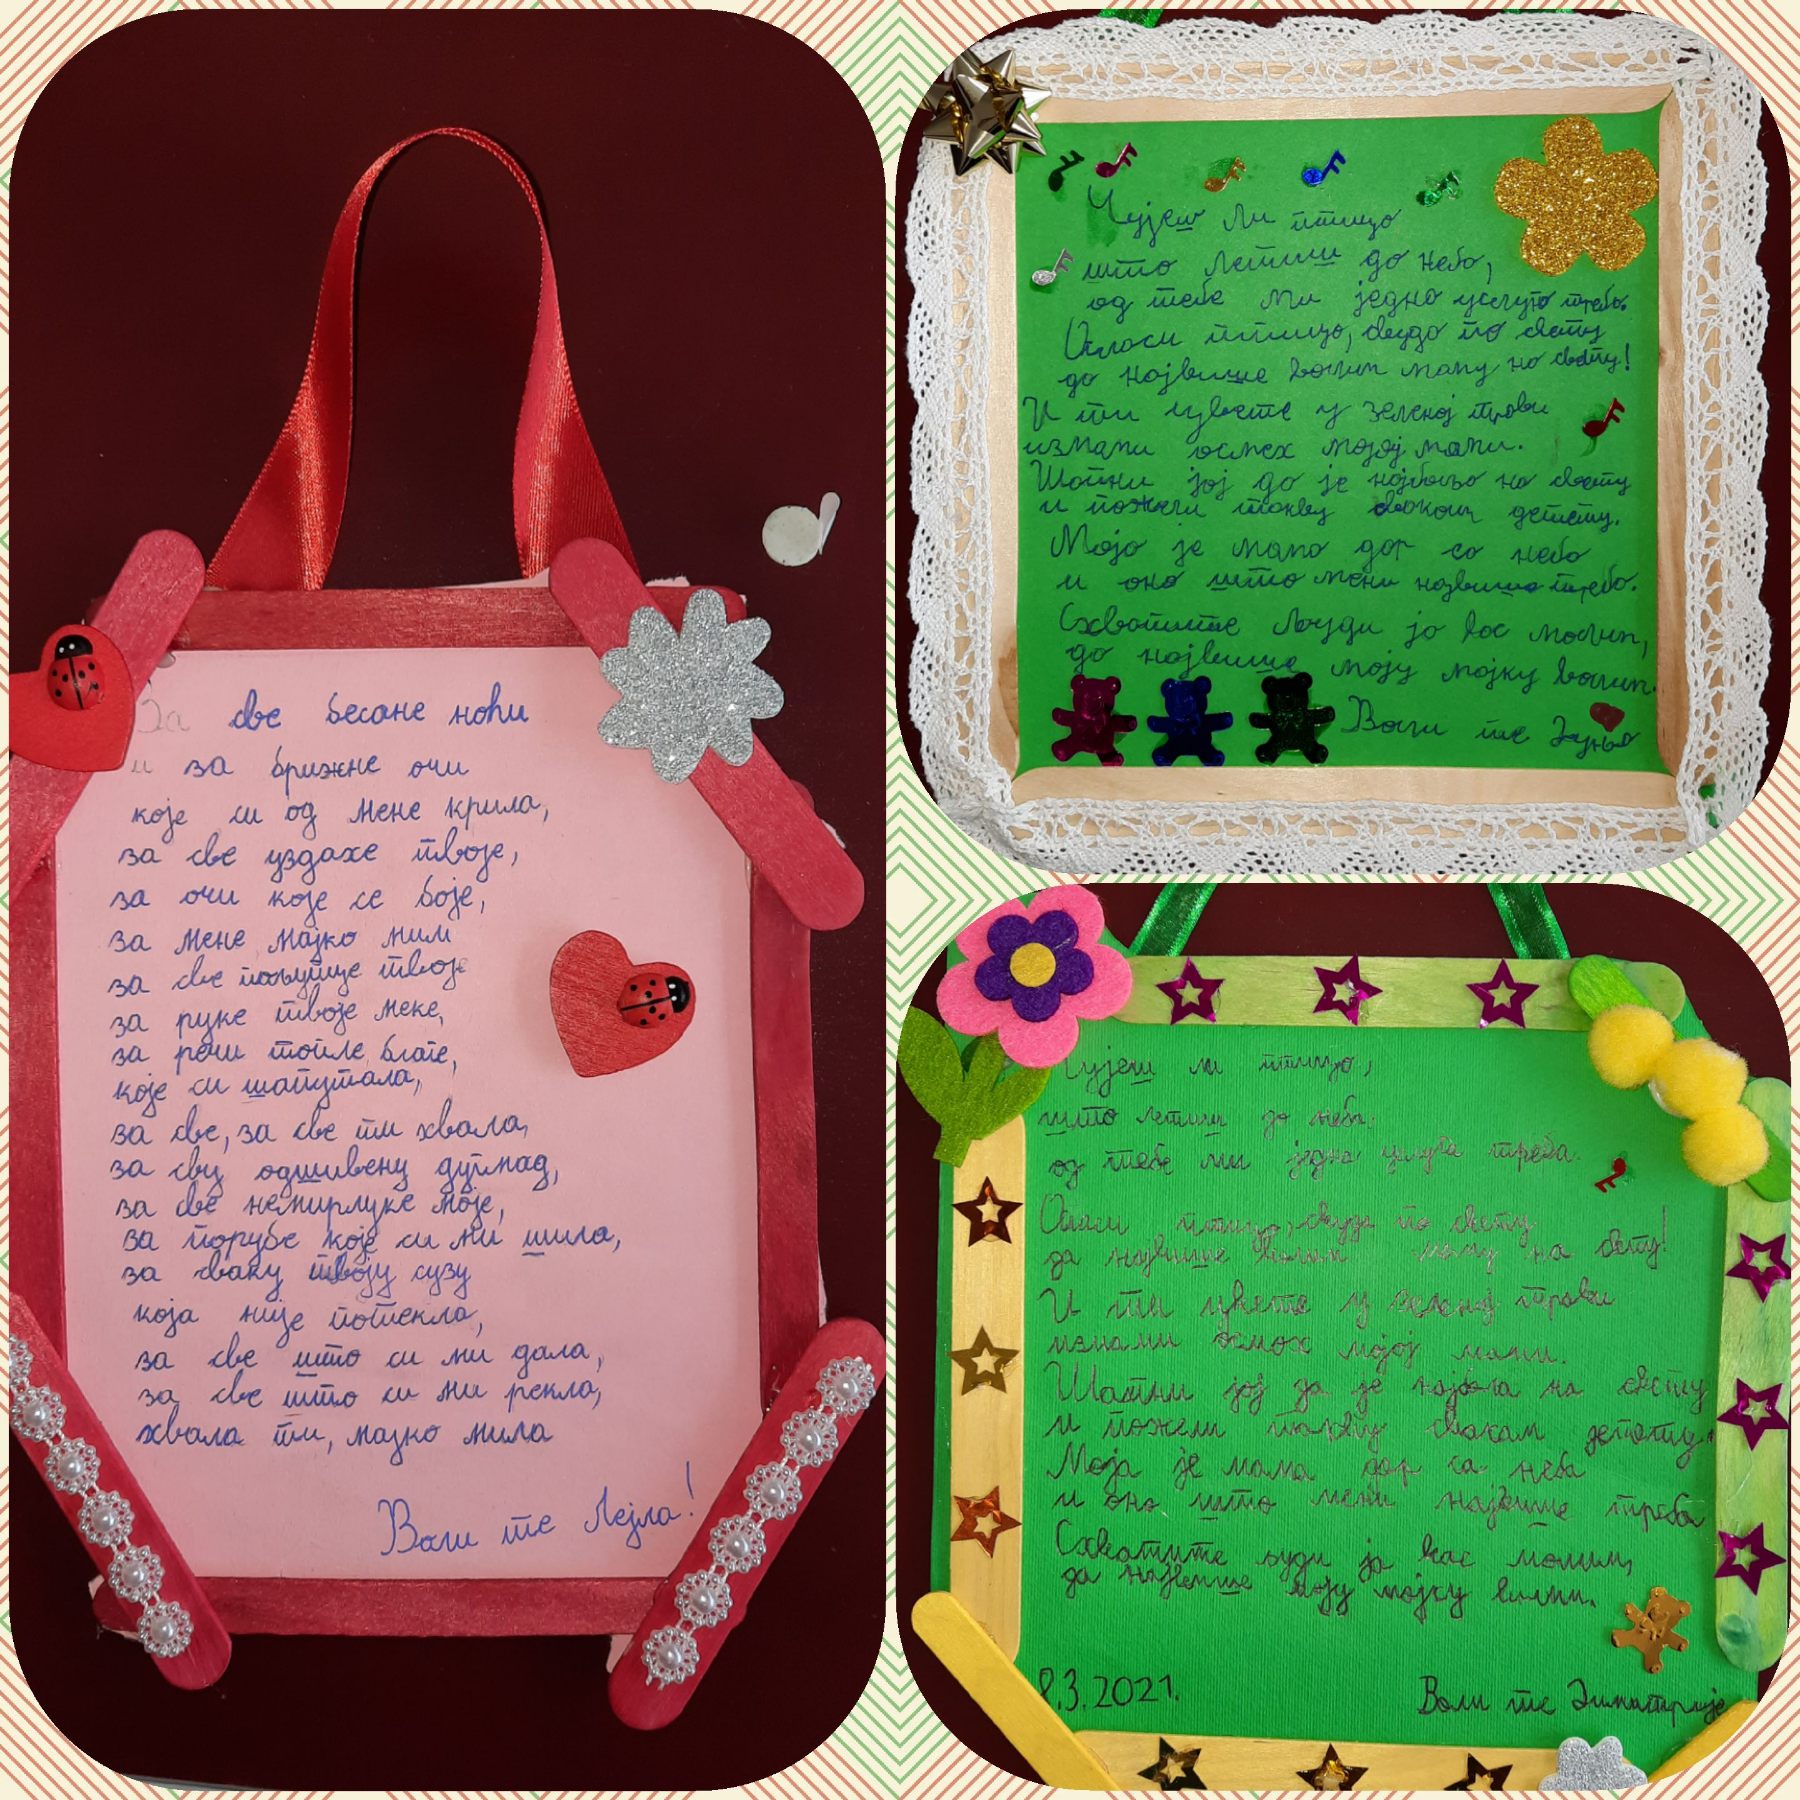 За све бесане ноћи
и за брижне очи
које си од мене крила,
за све уздахе твоје,
за очи које се боје,
за мене мајко мил
за све пољупце твоје
за руке твоје меке,
за речи топле, благе,
које си шапутала,
за све, за све ти хвала,
за сву одшивену дугмад,
за све немирлуке моје,
за порубе које си ми шила,
за сваку твоју сузу
која није потекла,
за све што си ми дала,
за све што си ми рекла,
хвала ти, мајко мила
Воли те Лејла!
Чујеш ли птицо
што летиш до неба,
од тебе ми једна услуга треба.
Огласи птицо, свуда по свету
да највише волим маму на свету!
И ти цвете у зеленој трави
измами осмех мојој мами.
Шапни јој да је најбоља на свету
и пожели такву сваком детету.
Моја је мама дар са неба
и оно што мени највише треба.
Схватите људи ја вас молим,
да највише моју мајку волим.
Воли те Дуња
Чујеш ли птицо,
што летиш до неба,
од тебе ми једна услуга треба.
Огласи птицо, свуда по свету
да највише волим маму на свету!
И ти цвете у зеленој трави
измами осмех мојој мами.
Шапни јој да је најбоља на свету
и пожели такву сваком детету.
Моја је мама дар са неба
и оно што мени највише треба
Схватите људи ја вас молим,
да највише моју мајку волим.
8.3.2021.
Воли те Димитрије